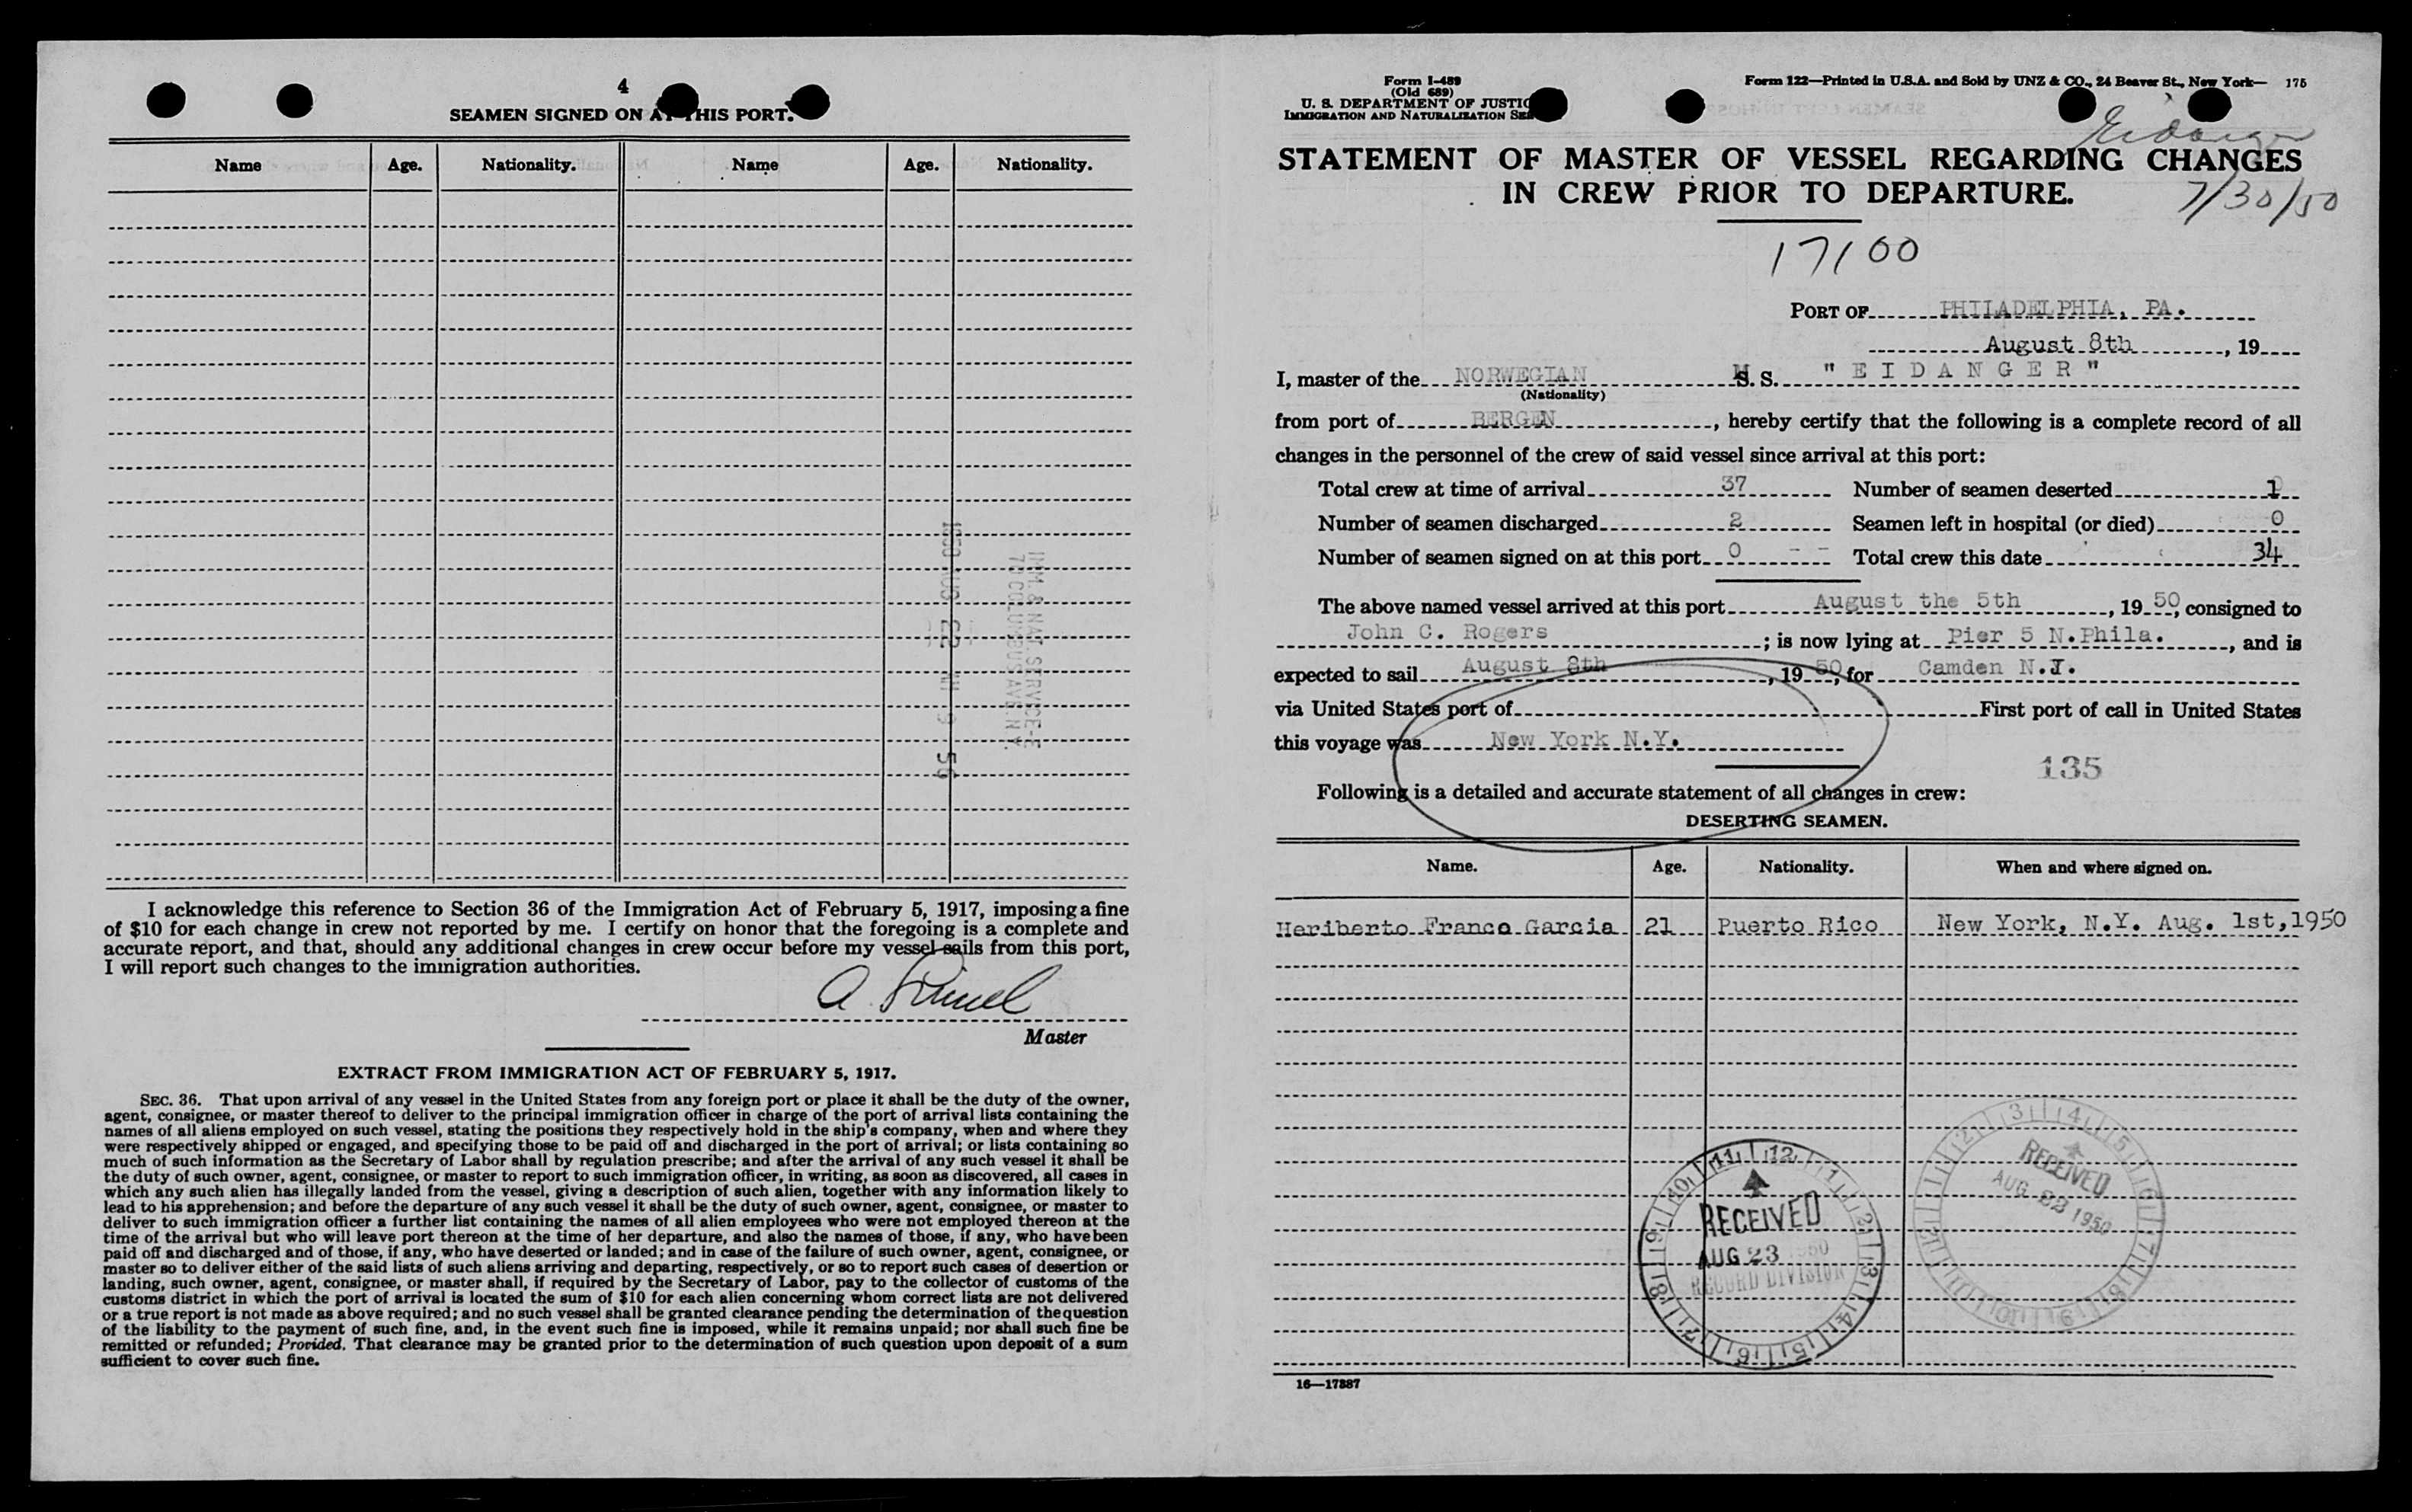 4
SEAMEN SIGNED ON AT THIS PORT.
Name Age. Nationality. Name Age. Nationality.
1950 AUG 22 AM 9 56
IMM. & NAT. SERVICE-E
70 COLUMBUS AVE. N.Y.
I acknowledge this reference to Section 36 of the Immigration Act of February 5, 1917, imposing a fine
of $10 for each change in crew not reported by me. I certify on honor that the foregoing is a complete and
accurate report, and that, should any additional changes in crew occur before my vessel sails from this port,
I will report such changes to the immigration authorities.
Master
EXTRACT FROM IMMIGRATION ACT OF FEBRUARY 5, 1917.
SEC. 36. That upon arrival of any vessel in the United States from any foreign port or place it shall be the duty of the owner,
agent, consignee, or master thereof to deliver to the principal immigration officer in charge of the port of arrival lists containing the
names of all aliens employed on such vessel, stating the positions they respectively hold in the ship's company, when and where they
were respectively shipped or engaged, and specifying those to be paid off and discharged in the port of arrival; or lists containing so
much of such information as the Secretary of Labor shall by regulation prescribe; and after the arrival of any such vessel it shall be
the duty of such owner, agent, consignee, or master to report to such immigration officer, in writing, as soon as discovered, all cases in
which any such alien has illegally landed from the vessel, giving a description of such alien, together with any information likely to
lead to his apprehension; and before the departure of any such vessel it shall be the duty of such owner, agent, consignee, or master to
deliver to such immigration officer a further list containing the names of all alien employees who were not employed thereon at the
time of the arrival but who will leave port thereon at the time of her departure, and also the names of those, if any, who have been
paid off and discharged and of those, if any, who have deserted or landed; and in case of the failure of such owner, agent, consignee, or
master so to deliver either of the said lists of such aliens arriving and departing, respectively, or so to report such cases of desertion or
landing, such owner, agent, consignee, or master shall, if required by the Secretary of Labor, pay to the collector of customs of the
customs district in which the port of arrival is located the sum of $10 for each alien concerning whom correct lists are not delivered
or a true report is not made as above required; and no such vessel shall be granted clearance pending the determination of the question
of the liability to the payment of such fine, and, in the event such fine is imposed, while it remains unpaid; nor shall such fine be
remitted or refunded; Provided, That clearance may be granted prior to the determination of such question upon deposit of a sum
sufficient to cover such fine.
Form I-489
(Old 689)
U. S. DEPARTMENT OF JUSTIC
IMMIGRATION AND NATURALIZATION SER
Form 122—Printed in U.S.A. and Sold by UNZ & CO., 24 Beaver St., New York— 175
Eidanger
STATEMENT OF MASTER OF VESSEL REGARDING CHANGES
IN CREW PRIOR TO DEPARTURE.
7/30/50
17100
PORT OF PHILADELPHIA, PA.
August 8th, 19
I, master of the NORWEGIAN M S. S. "EIDANGER"
(Nationality)
from port of BERGEN, hereby certify that the following is a complete record of all
changes in the personnel of the crew of said vessel since arrival at this port:
Total crew at time of arrival 37 Number of seamen deserted 1
Number of seamen discharged 2 Seamen left in hospital (or died) 0
Number of seamen signed on at this port 0 - - Total crew this date 34
The above named vessel arrived at this port August the 5th, 19 50, consigned to
John C. Rogers; is now lying at Pier 5 N.Phila., and is
expected to sail August 8th, 19 50, for Camden N.J.
via United States port of First port of call in United States
this voyage was New York N.Y.
135
Following is a detailed and accurate statement of all changes in crew:
DESERTING SEAMEN.
Name. Age. Nationality. When and where signed on.
Heriberto Franco Garcia 21 Puerto Rico New York, N.Y. Aug. 1st,1950
11 12 1 2 3 4 5 6 7 8 9 10
RECEIVED
AUG 23 1950
RECORD DIVISION
RECEIVED
AUG 23 1950
16—17387